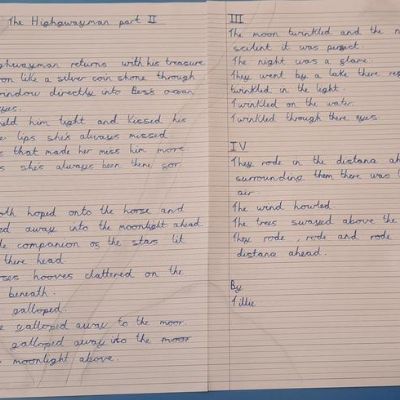 The Highgwayman part II
ghwayman returns with his treasure
on like a silver coin shone through
indow directly into Bess's ocean
eyes.
ld him tight and kissed his
lips she's always missed
that made her miss him more
she's always been there for
oth hoped onto the horse and
ed away into the moonlight ahead
companion of the stars lit
there head
ses hooves clattered on the
beneath.
galloped.
galloped away to the moor
galloped away into the moor
moonlight above.
III
The moon twinkled and the n
scilent it was perfect.
The night was a stare.
They went by a lake there ref
twinkled in the light.
Twinkled on the water.
Twinkled through there eyes.
IV
They rode in the distance ah
surrounding them there was
air.
The wind howled
The trees swayed above the
They rode, rode and rode
distance ahead.
By
Tillie